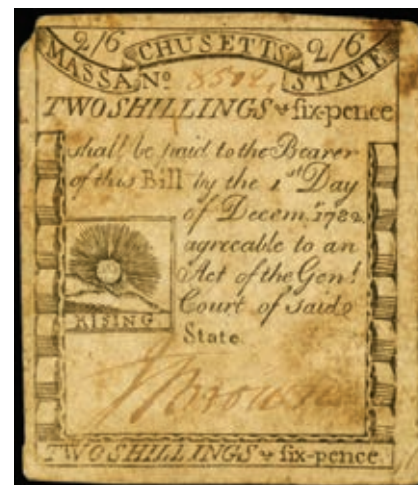 2/6 CHUSETTS 2/6
MASSA Nº STATE
TWO SHILLINGS & six-pence
shall be paid to the Bearer
of this Bill by the 1st Day
of Decem. 1782
agreeable to an
Act of the Genl.
Court of said
State.
RISING
TWO SHILLINGS & six-pence.